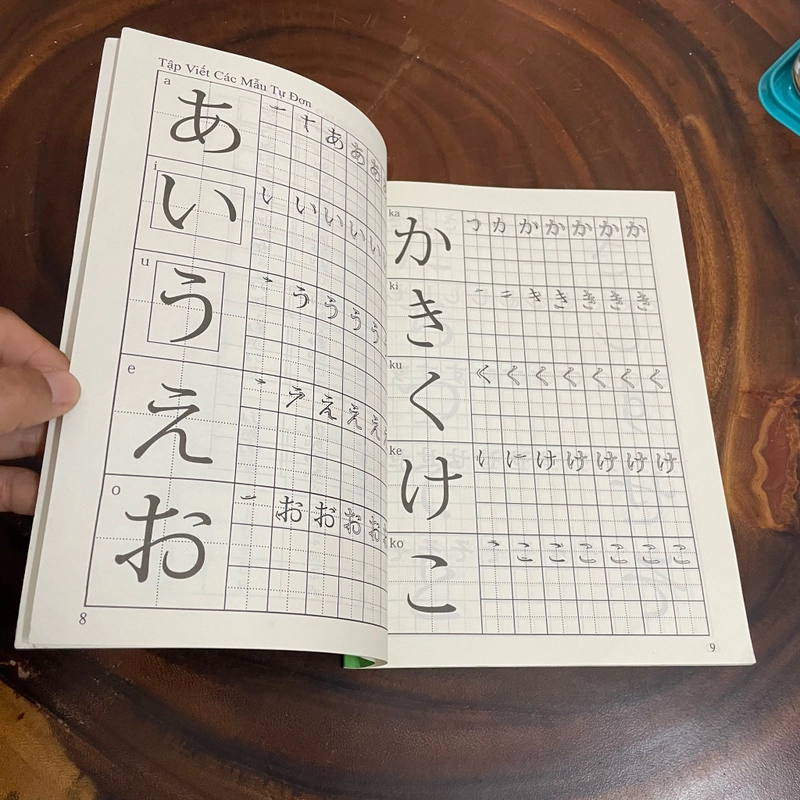 Tập Viết Các Mẫu Tự Đơn
a
あ
あ あ あ
i
い
い い い い い
う
u
う う う う
e
え
え え え
o
お
お お お お
8
ka
か
か か か か か か
ki
き
き き き き き
ku
く
く く く く く く く
ke
け
け け け け け
ko
こ
こ こ こ こ こ こ
9